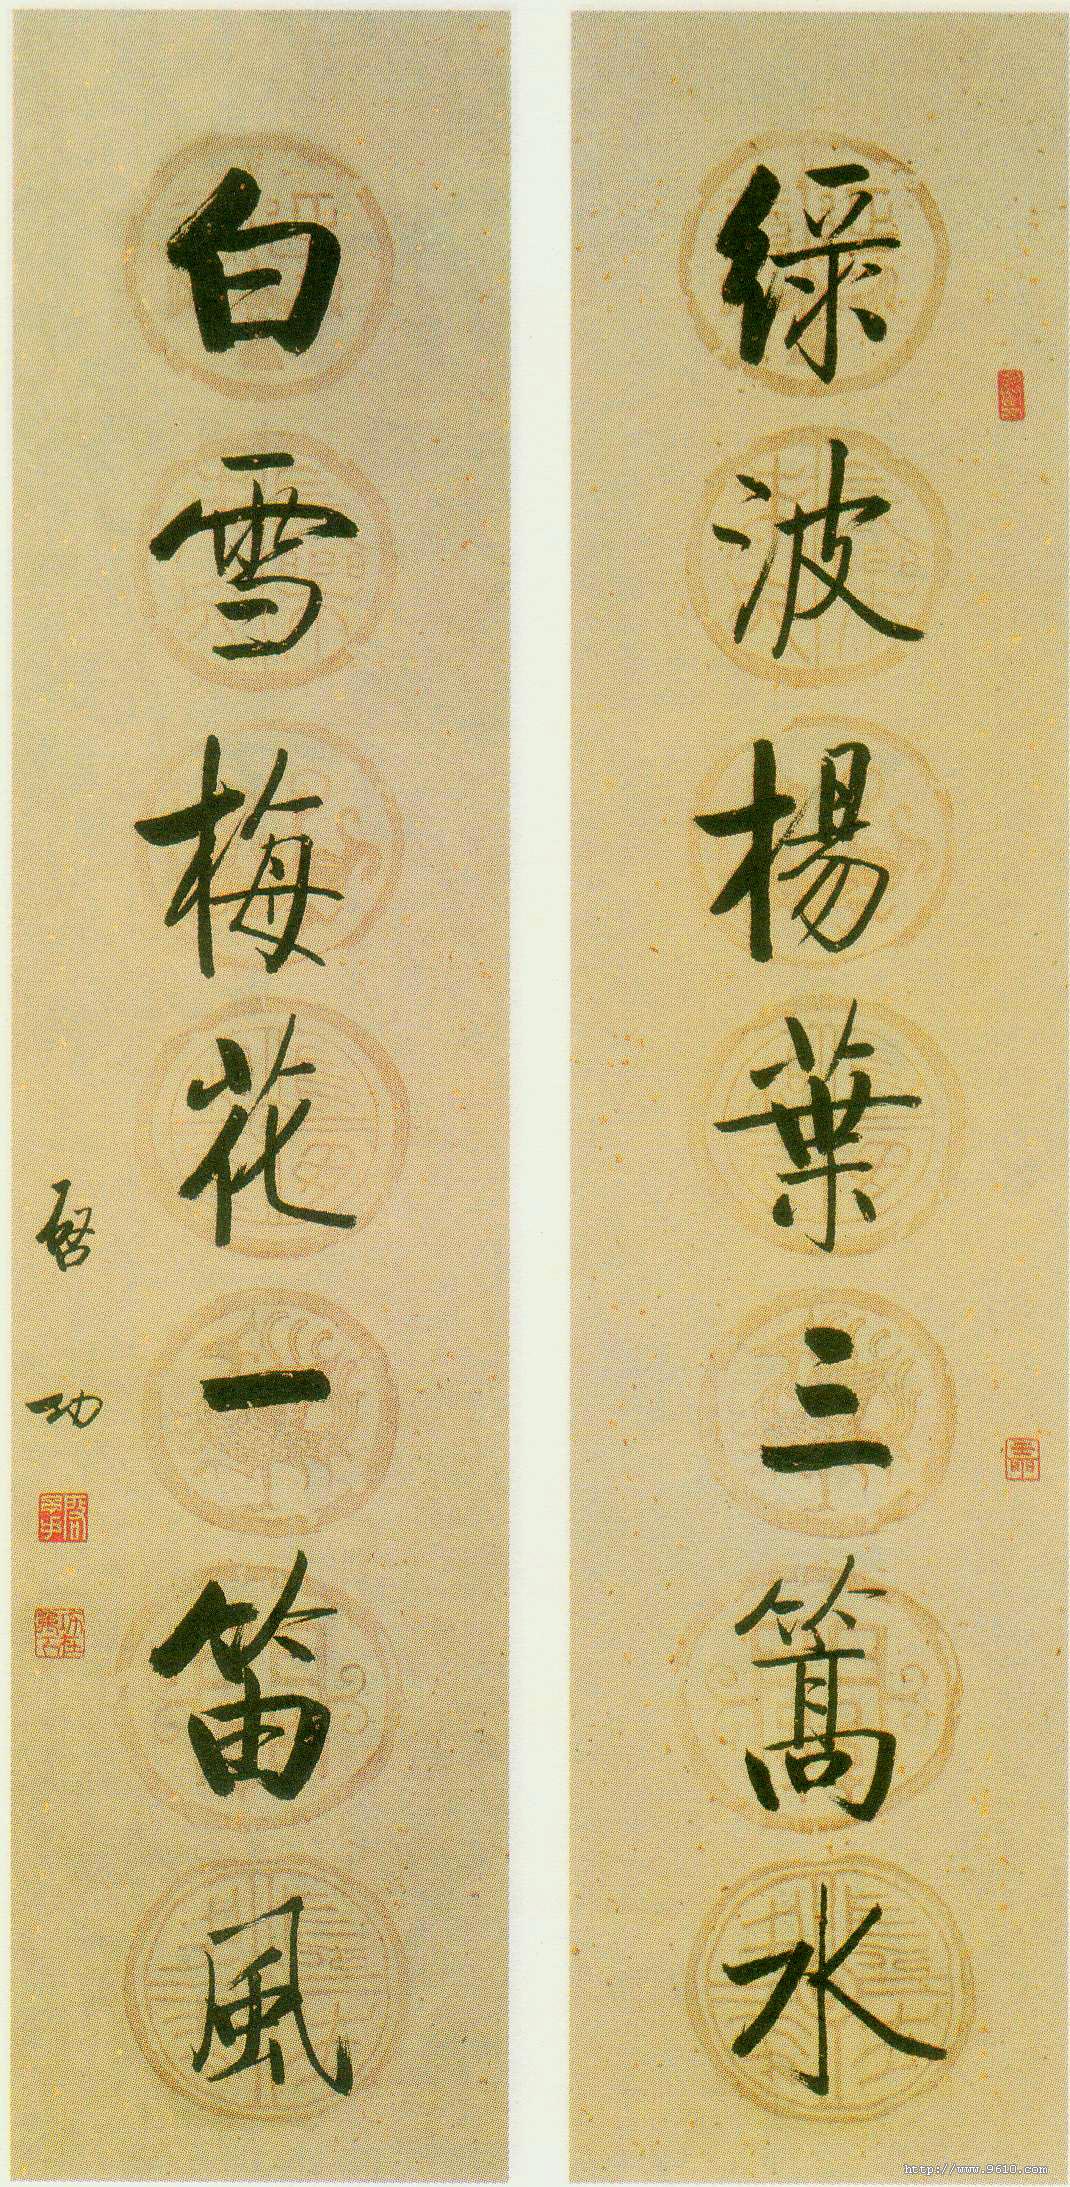 綠波楊葉三篙水
白雪梅花一笛風
啟功
http://www.9610.com